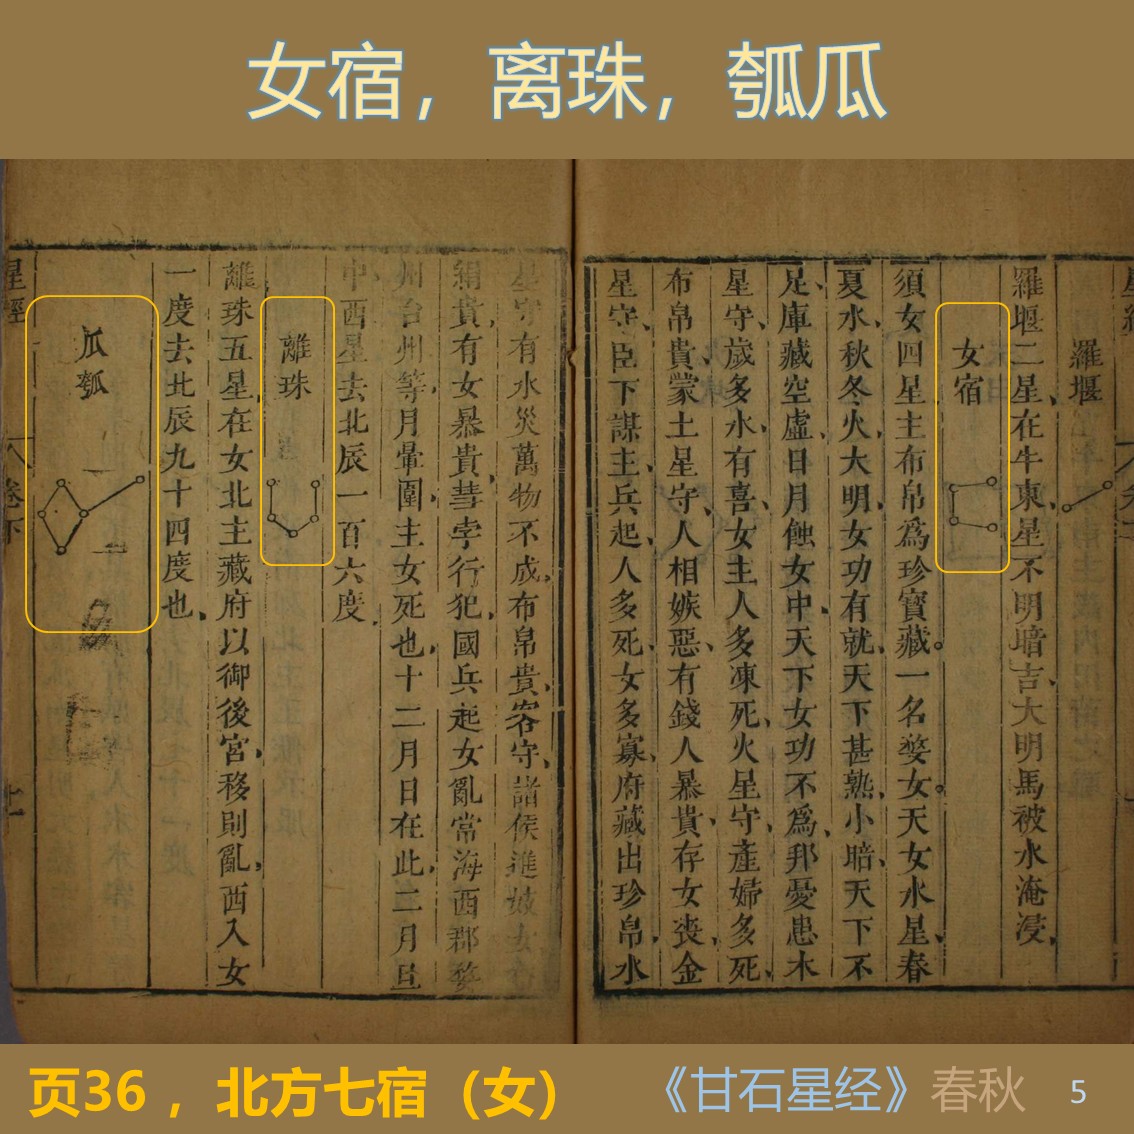 女宿，离珠，瓠瓜
羅堰
羅堰二星在牛東星不明暗吉大明馬被水淹浸
女宿
須女四星主布帛爲珍寶藏一名婺女天女水星春
夏水秋冬火大明女功有就天下甚熟小暗天下不
足庫藏空虛日月蝕女中天下女功不爲邦憂患木
星守歲多水有喜女主人多凍死火星守產婦多死
布帛貴蒙土星守人相嫉惡有錢人暴貴存女喪金
星守臣下謀主兵起人多死女多寡府藏出珍帛水
星守有水災萬物不成布帛貴客守諸侯進妓女
絹貴有女暴貴彗孛行犯國兵起女亂常海西郡婺
州台州等月暈圍主女死也十二月日在此二月旦
中西星去北辰一百六度
離珠
離珠五星在女北主藏府以御後宮移則亂西入女
一度去北辰九十四度也
瓜瓠
星經
卷下
页36 ，北方七宿（女）
《甘石星经》春秋
5